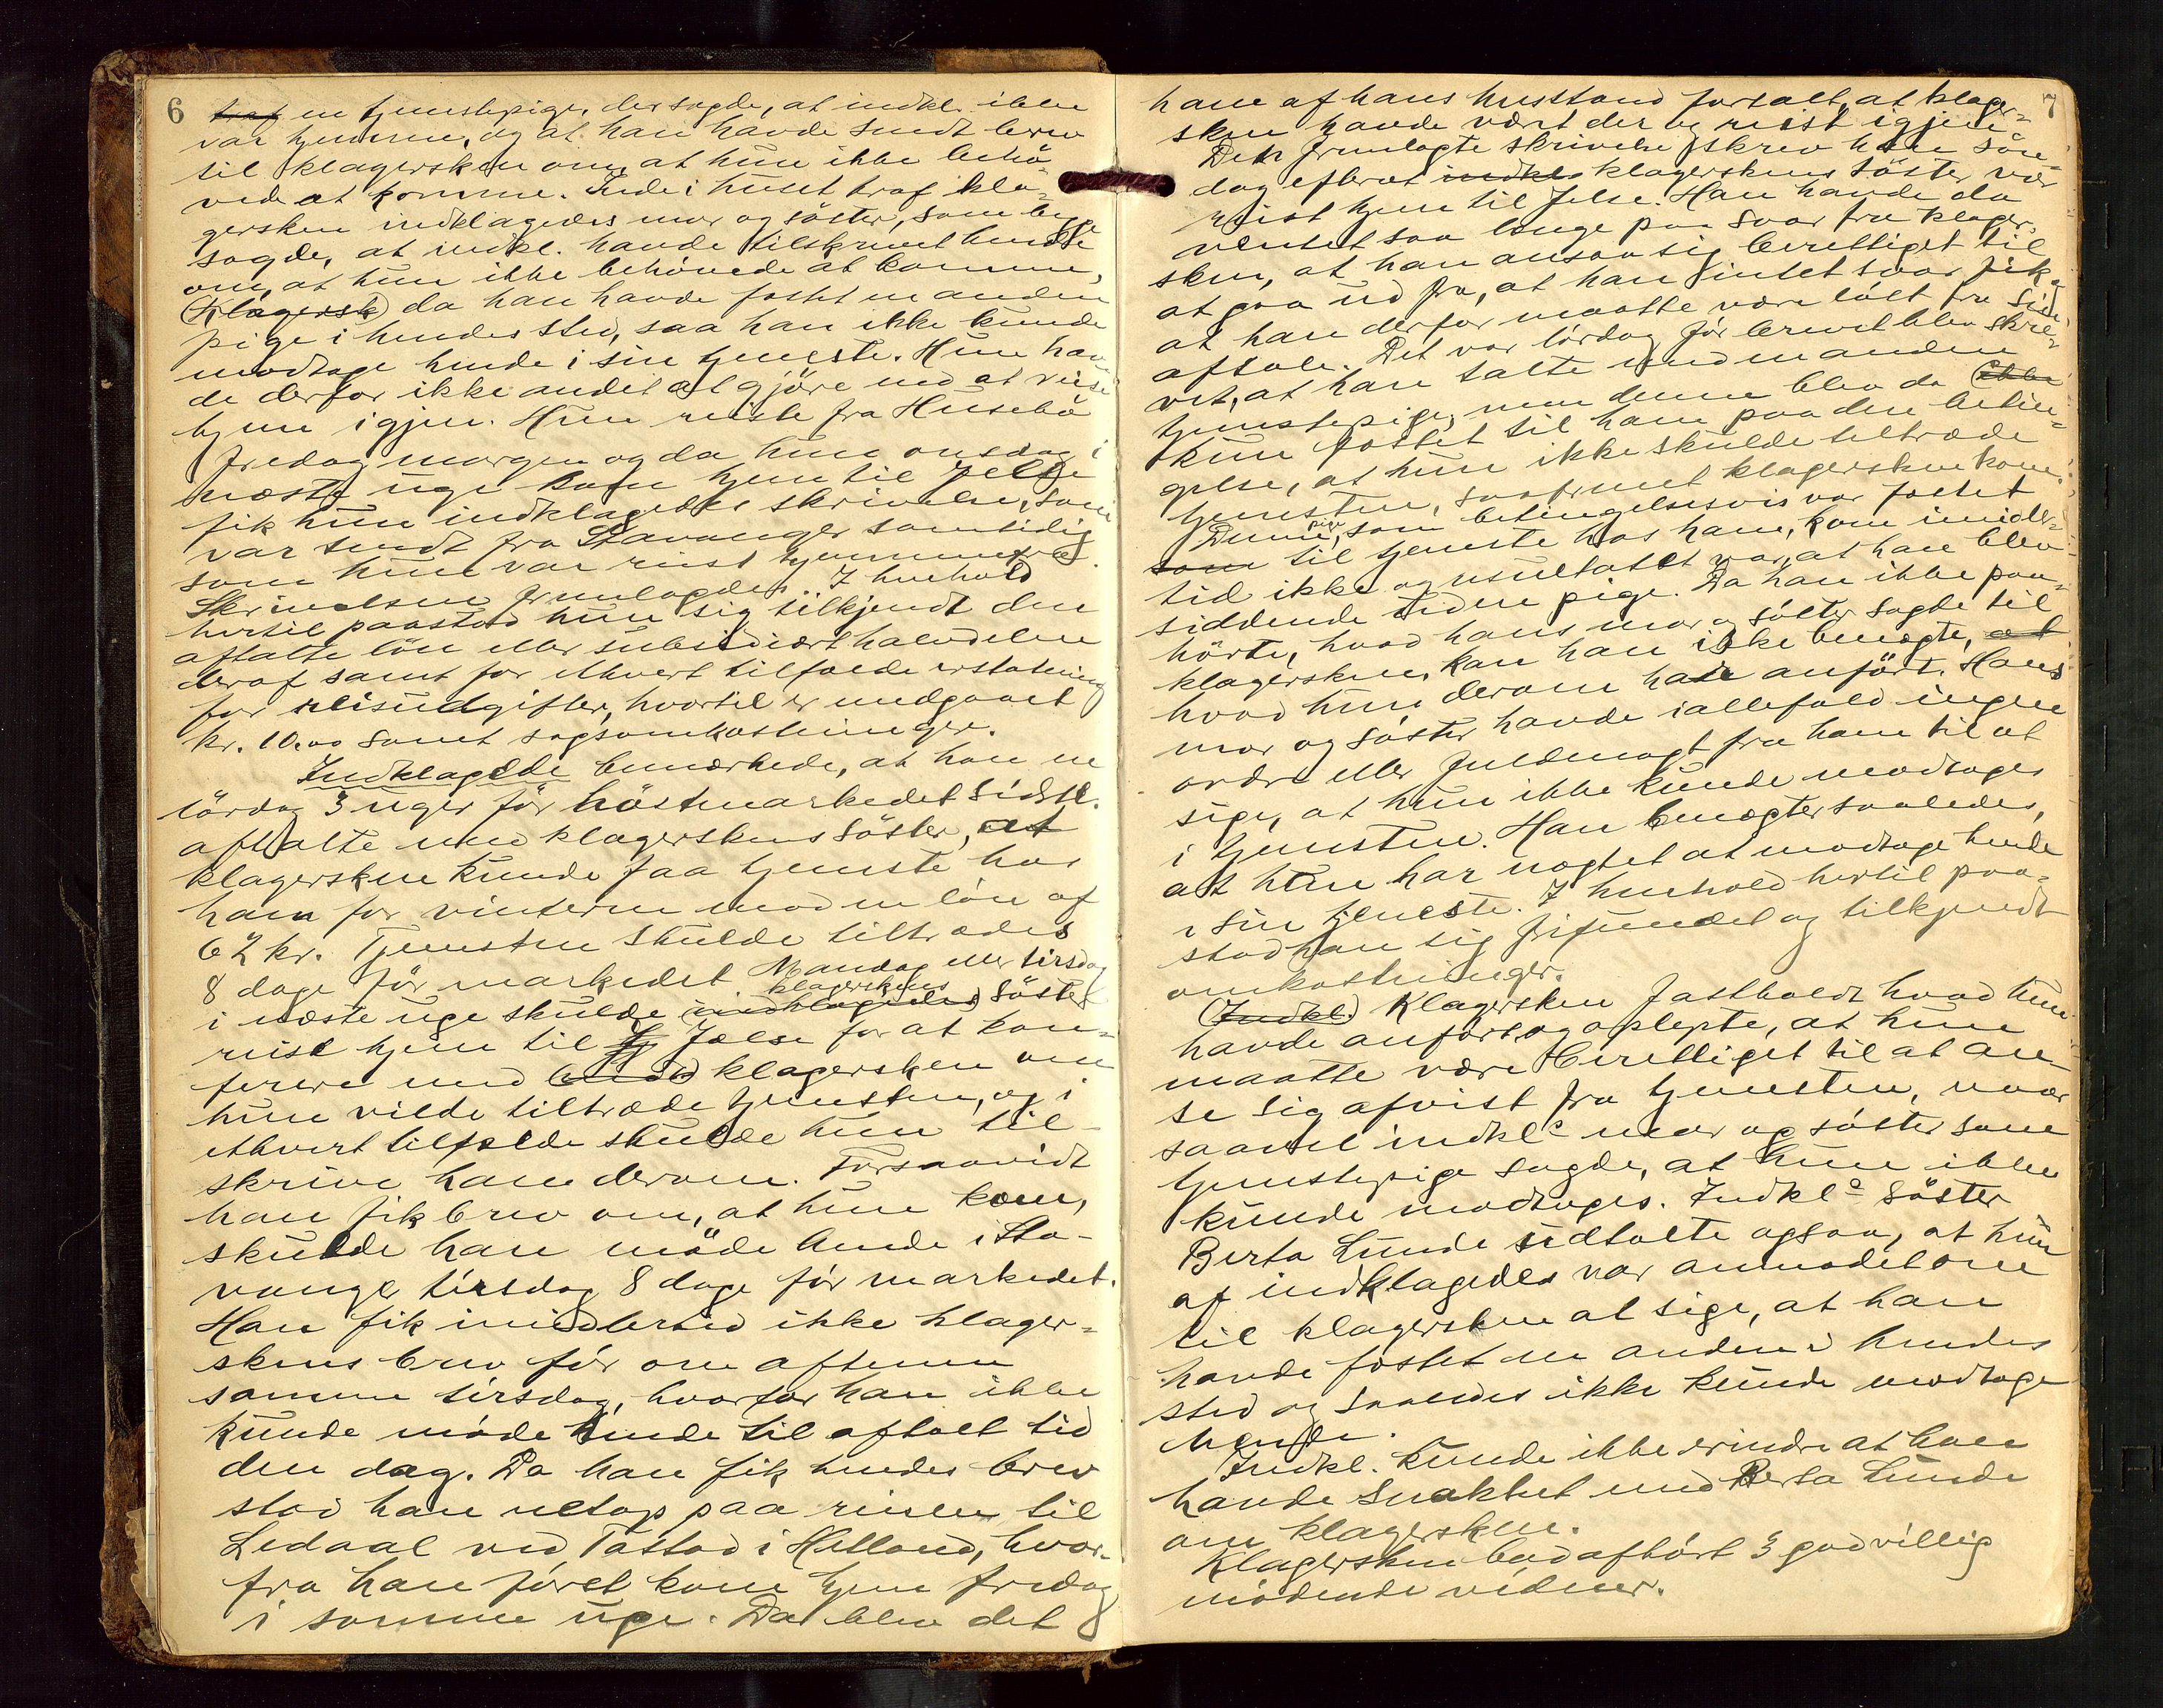 6
traf en tjenestepige, der sagde, at indkl. ikke
var hjemme, og at han havde sendt brev
til klagersken om, at hun ikke behö-
vede at komme. Inde i huset traf kla-
gersken indklagedes mor og söster, som begge
sagde, at indkl. havde tilskrevet hende
om, at hun ikke behövede at komme,
(Klagersk) da han havde fæstet en anden
pige i hendes sted, saa han ikke kunde
modtage hende i sin tjeneste. Hun hav-
de derfor ikke andet at gjöre end at reise
hjem igjen. Hun reiste fra Husebö
fredag morgen og da hun onsdag i
næste uge kom hjem til Jelse
fik hun indklagedes skrivelse, som
var sendt fra Stavanger samtidig
som hun var reist hjemmefra.
Skrivelsen fremlagdes. I henhold
hertil paastod hun sig tilkjendt den
aftalte lön eller subsidiært halvdelen
deraf samt for ethvert tilfælde erstatning
for reiseudgifter, hvortil er medgaaet
kr. 10.00 samt sagsomkostninger.
Indklagede bemærkede, at han en
lördag 3 uger för höstmarkedet sidstl.
aftalte med klagerskens söster, at
klagersken kunde faa tjeneste hos
ham for vinteren mod en lön af
62 kr. Tjenesten skulde tiltrædes
8 dage för markedet. Mandag eller tirsdag
i næste uge skulde (indklagedes) klagerskens söster
reise hjem til Jj Jælse for at kon-
ferere med (indkl) klagersken om
hun vilde tiltræde tjenesten, og i
ethvert tilfælde skulde hun til-
skrive ham derom. Forsaavidt
han fik brev om, at hun kom,
skulde han möde hende i Sta-
vanger tirsdag 8 dage för markedet.
Han fik imidlertid ikke klager-
skens brev för om aftenen
samme tirsdag, hvorfor han ikke
kunde möde hende til aftalt tid
den dag. Da han fik hendes brev
stod han netop paa reisen til
Ledaal ved Tastad i Hetland, hvor-
fra han först kom hjem fredag
i samme uge. Da blev det
7
ham af hans husstand fortalt, at klager-
sken havde vært der og reist igjen.
Den fremlagte skrivelse skrev han sön-
dag efterat indkl. klagerskens söster var
reist hjem til Jelse. Han havde da
ventet saa længe paa svar fra klager-
sken, at han ansaa sig berettiget til
at gaa ud fra, at han intet svar fik og
at han derfor maatte være löst fra sin
aftale. Det var lördag för brevet blev skre-
vet, at han talte med en anden
tjenestepige, men denne blev da (ikke
kun fæstet til ham paa den betin-
gelse, at hun ikke skulde tiltræde
tjenesten, saafremt klagersken kom.
Denne pige, som betingelsesvis var fæstet
som til tjeneste hos ham, kom imider-
tid ikke og resultatet var, at han blev
siddende uden pige. Da han ikke paa-
hörte, hvad hans mor og söster sagde til
klagersken, kan han ikke benægte, at
hvad hun derom har anfört. Hans
mor og söster havde iallefald ingen
ordre eller fuldmagt fra ham til at
sige, at hun ikke kunde modtages
i tjenesten. Han benægter saaledes,
at han har nægtet at modtage hende
i sin tjeneste. I henhold hertil paa-
stod han sig frifundet og tilkjendt
omkostninger.
(Indkl.) Klagersken fastholdt hvad hun
havde anfört, og oplyste, at hun
maatte være berettiget til at an-
se sig afvist fra tjenesten, naar
saavel indkl.s mor og söster som
tjenestepige sagde, at hun ikke
kunde modtages. Indkl.s söster
Berta Lunde udtalte ogsaa, at hun
af indklagedes var anmodet om
til klagersken at sige, at han
havde fæstet en anden i hendes
sted og saaledes ikke kunde modtage
hende.
Indkl. kunde ikke erindre at have
havde snakket med Berta Lunde
om klagersken.
Klagersken bad afhört 3 godvillig
mödende vidner.